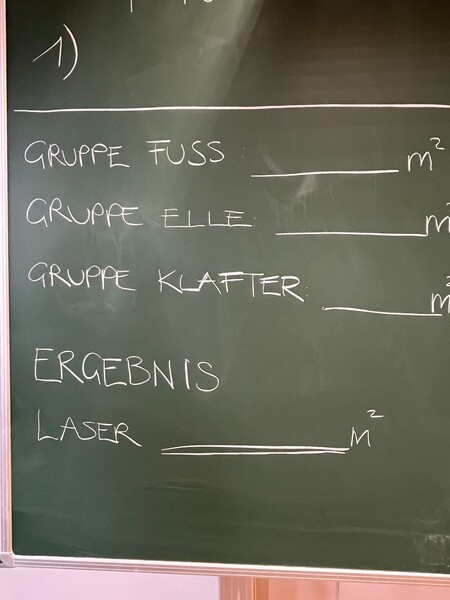 1)
GRUPPE FUSS: ________ m²
GRUPPE ELLE: ________ m²
GRUPPE KLAFTER: ________ m²
ERGEBNIS
LASER ________ m²